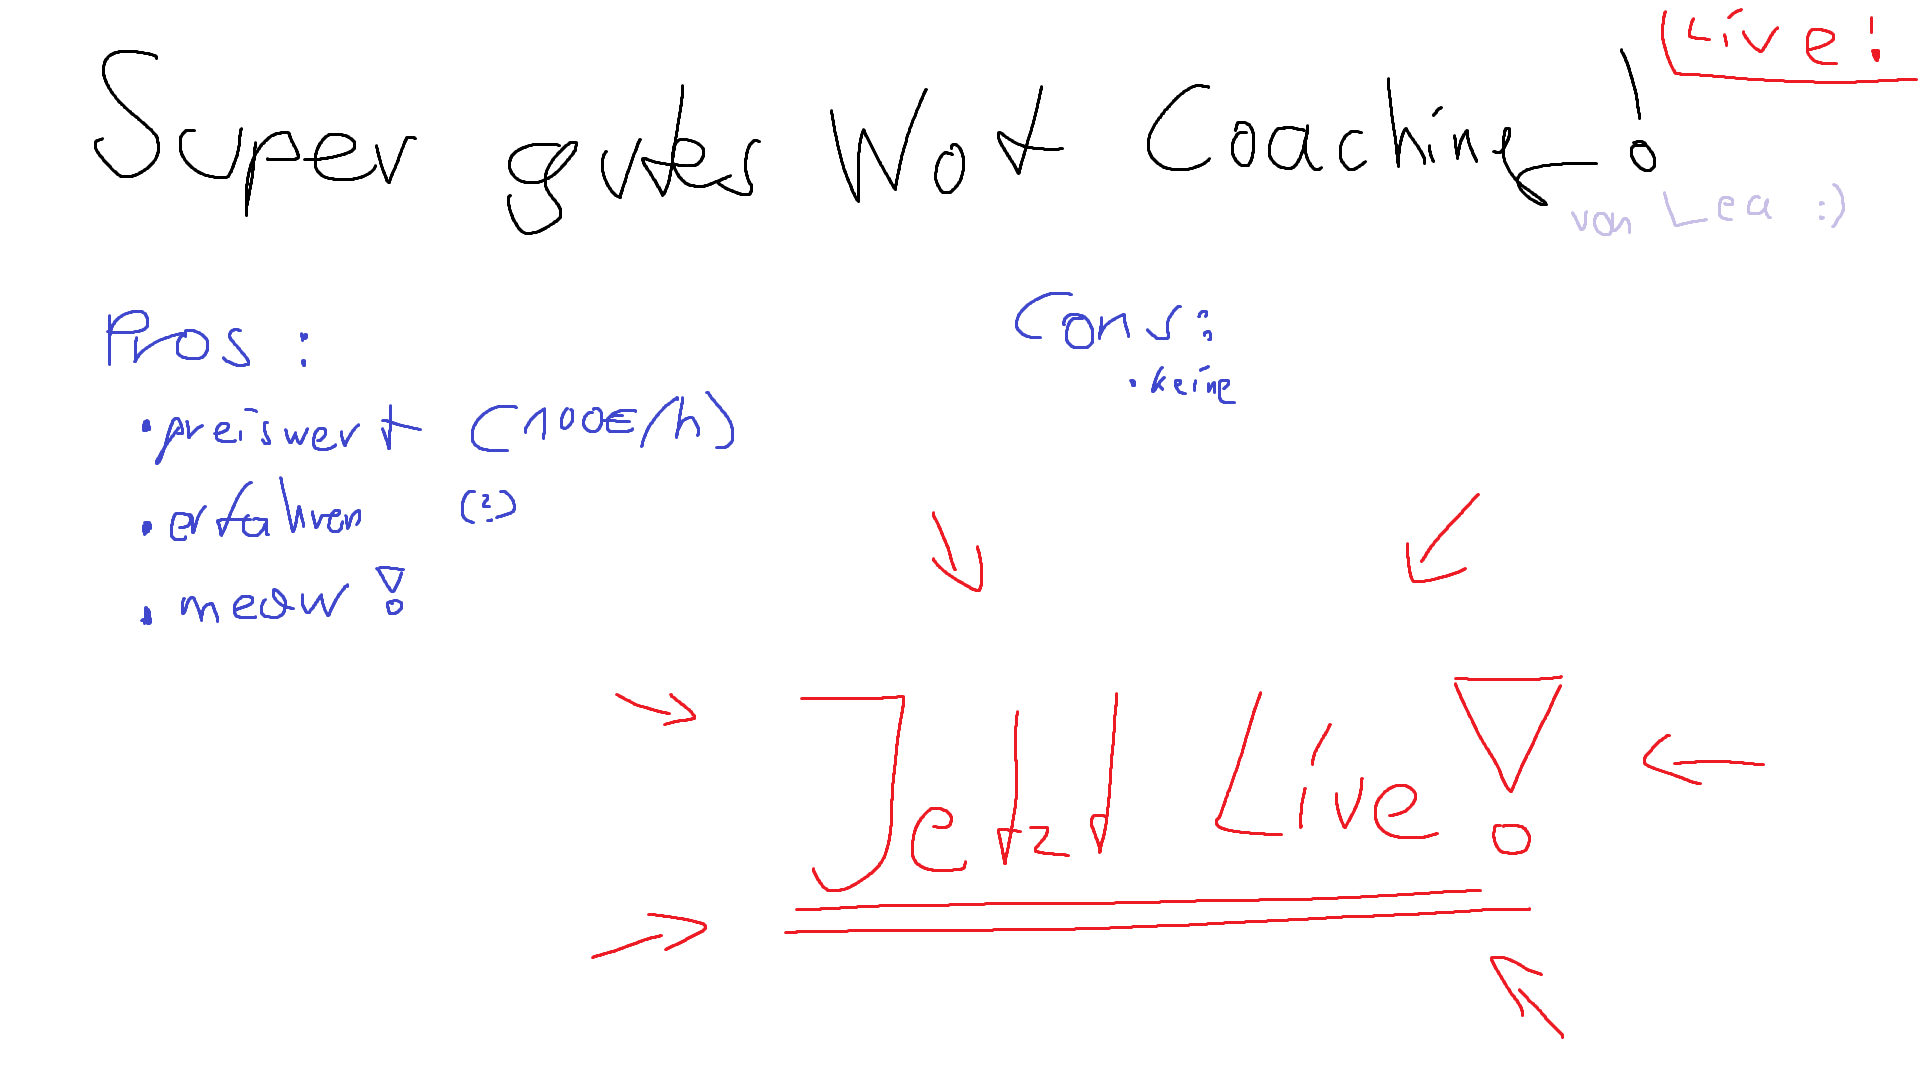 Live!
Super gutes Wot Coaching!
von Lea :)
Pros:
• preiswert (100€/h)
• erfahren (?)
• meow!
Cons:
• keine
Jetzt Live!